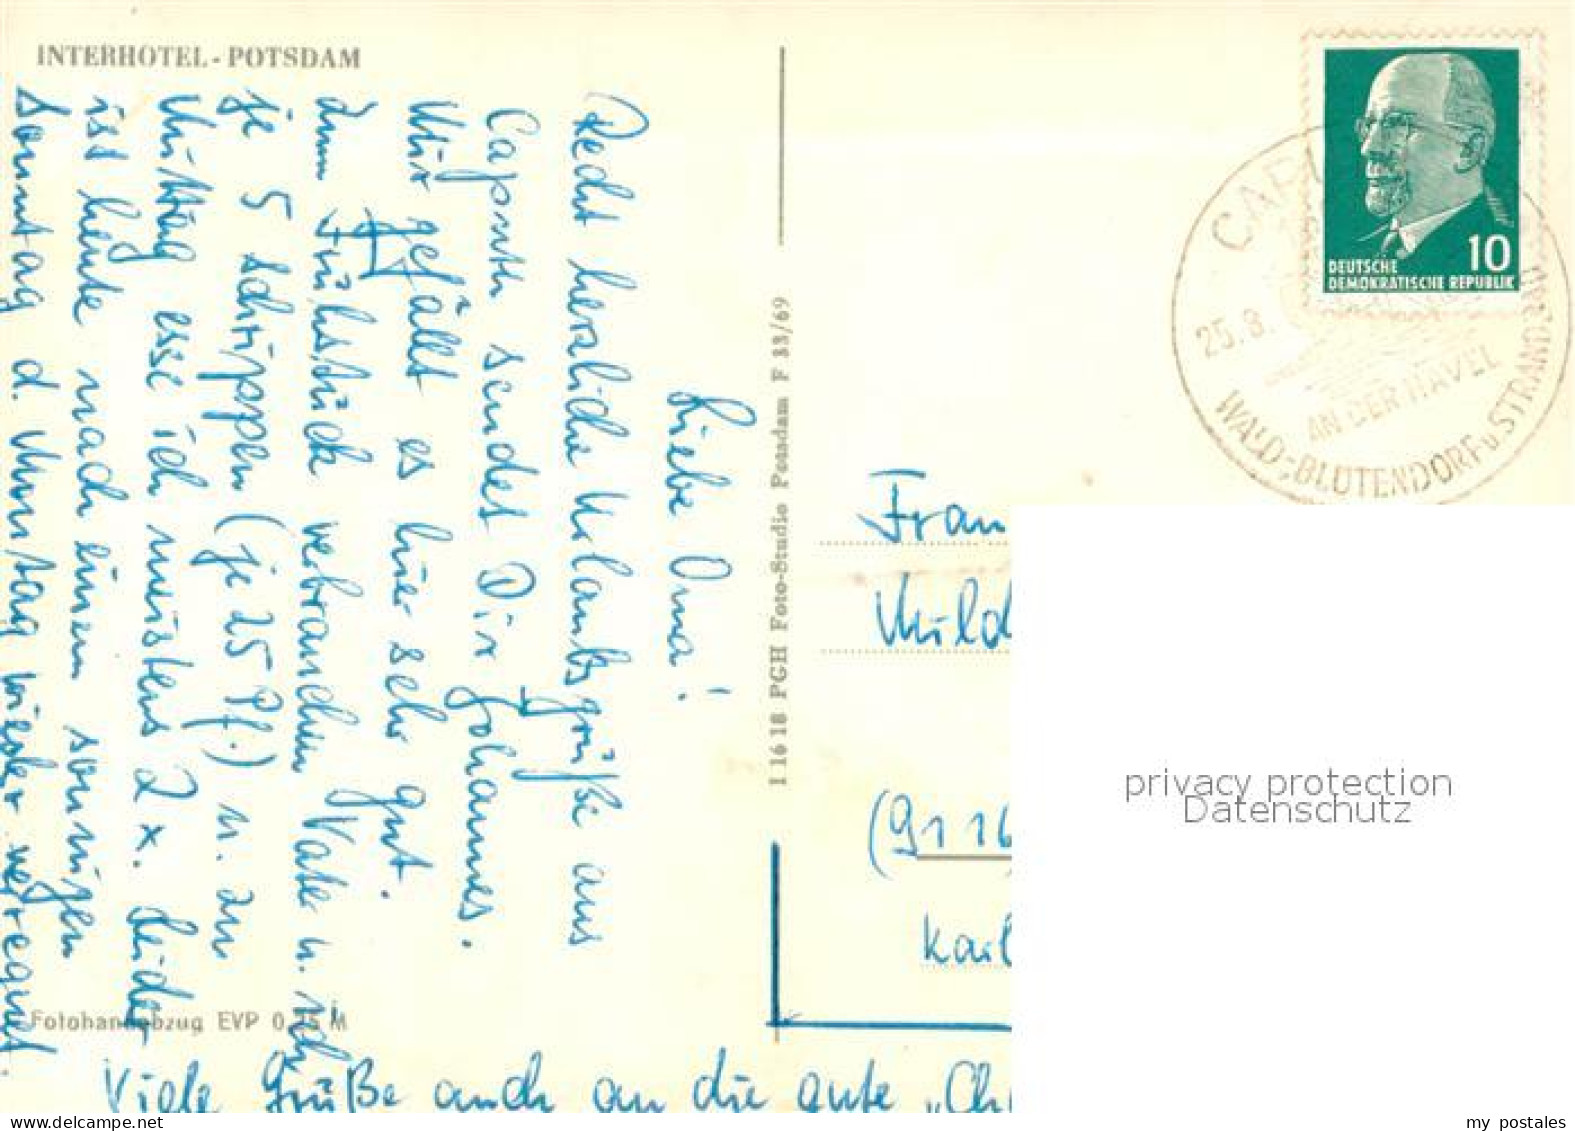 INTERHOTEL - POTSDAM
Liebe Oma!
Recht herzliche Urlaubsgrüße aus
Caputh sendet Dir Johannes.
Mir gefällt es hier sehr gut.
Zum Frühstück verbrauchen Vater u. ich
je 5 Schrippen (je 25 Pf.) u. zu
Mittag esse ich meistens 2 x. Leider
ist heute nach einem sonnigen
Sonntag d. Montag wieder verregnet.
Viele Grüße auch an die gute „Ch
Fotohandabzug EVP 0,25 M
I 16 18 PGH Foto-Studio Potsdam F 33/69
10
DEUTSCHE
DEMOKRATISCHE REPUBLIK
25.8.
AN DER HAVEL
WALD-BLÜTENDORF u. STRANDBAD
Frau
Mild
(9116
Karl
privacy protection
Datenschutz
my postales